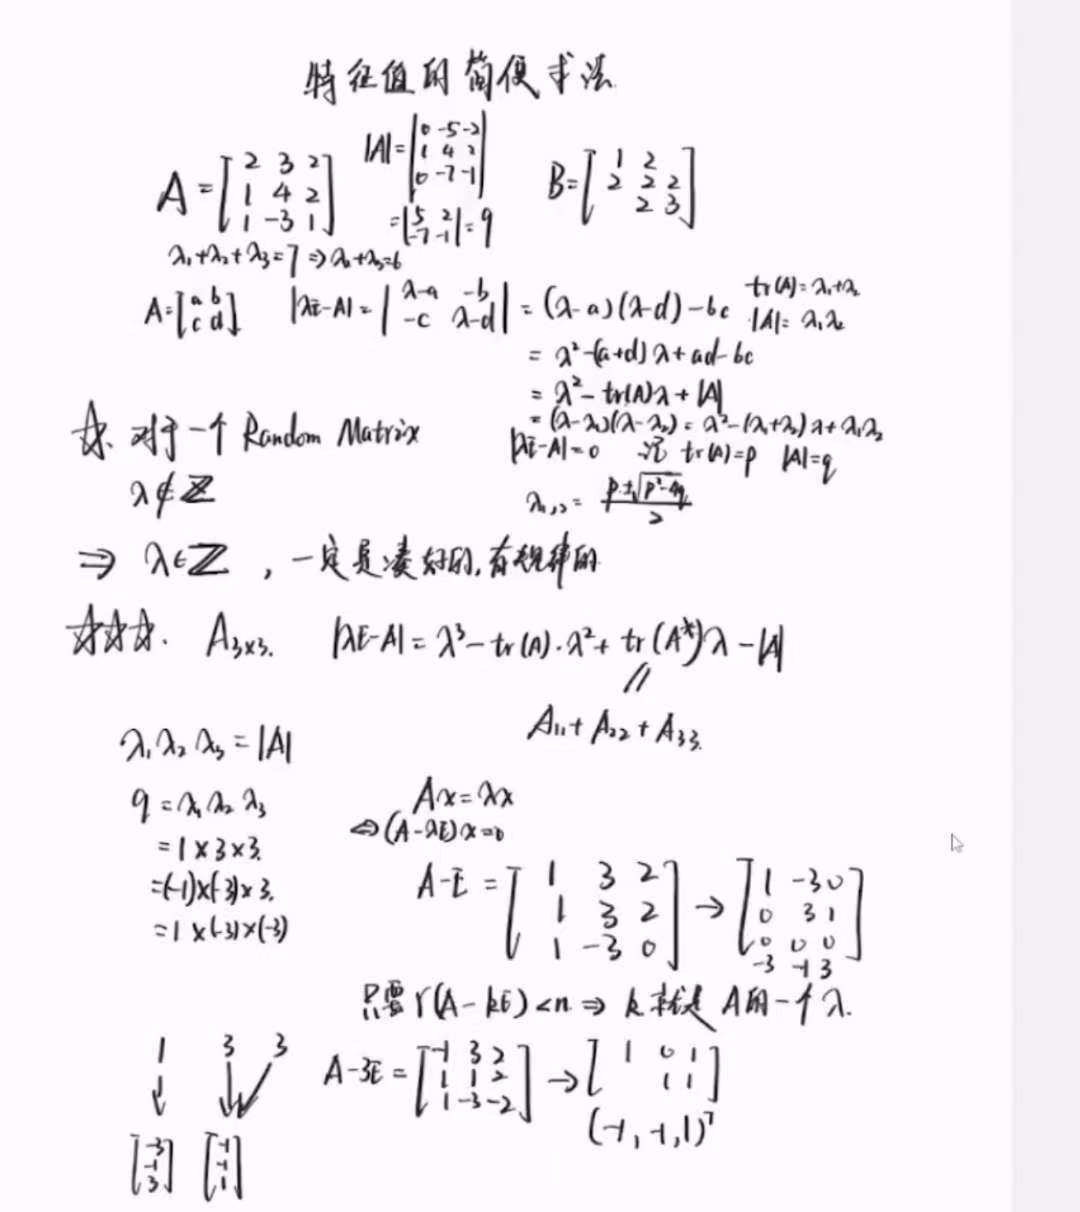 特征值的简便求法
A = [2 3 2; 1 4 2; 1 -3 1]
|A| = |0 -5 -2; 1 4 2; 0 -7 -1|
= |5 2; -7 -1| = 9
B = [1 2; 2 2 2; 2 3]
λ₁+λ₂+λ₃=7 ⇒ λ₂+λ₃=6
A=[a b; c d] |λE-A| = |λ-a -b; -c λ-d| = (λ-a)(λ-d) - bc
tr(A) = λ₁+λ₂
|A| = λ₁λ₂
= λ² - (a+d)λ + ad - bc
= λ² - tr(A)λ + |A|
= (λ-λ₁)(λ-λ₂) = λ² - (λ₁+λ₂)λ + λ₁λ₂
☆. 对于一个 Random Matrix
λ ∉ ℤ
|λE-A|=0 记 tr(A)=p |A|=q
λ₁,₂ = (p ± √(p²-4q))/2
⇒ λ∈ℤ , 一定是凑好的, 有规律的
☆☆☆. A₃ₓ₃. |λE-A| = λ³ - tr(A)·λ² + tr(A*)λ - |A|
//
A₁₁ + A₂₂ + A₃₃.
λ₁λ₂λ₃ = |A|
9 = λ₁λ₂λ₃
= 1×3×3.
=(-1)×(-3)×3.
= 1×(-3)×(-3)
Ax = λx
⇔ (A-λE)x = 0
A-E = [1 3 2; 1 3 2; 1 -3 0] → [1 -3 0; 0 3 1; 0 0 0]
-3 -1 3
只要 r(A-kE) < n ⇒ k 就是 A的一个λ.
A-3E = [-1 3 2; 1 1 2; 1 -3 -2] → [1 0 1; 1 1]
(-1, -1, 1)ᵀ
1 3 3
[-3; -1; 3] [-1; -1; 1]